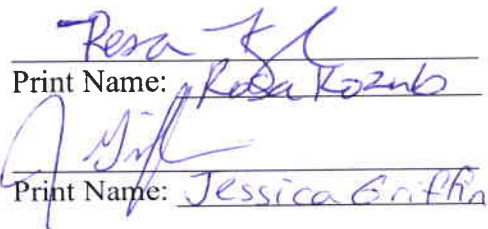 Rosa
Print Name: Rosa Kozub
Print Name: Jessica Griffin